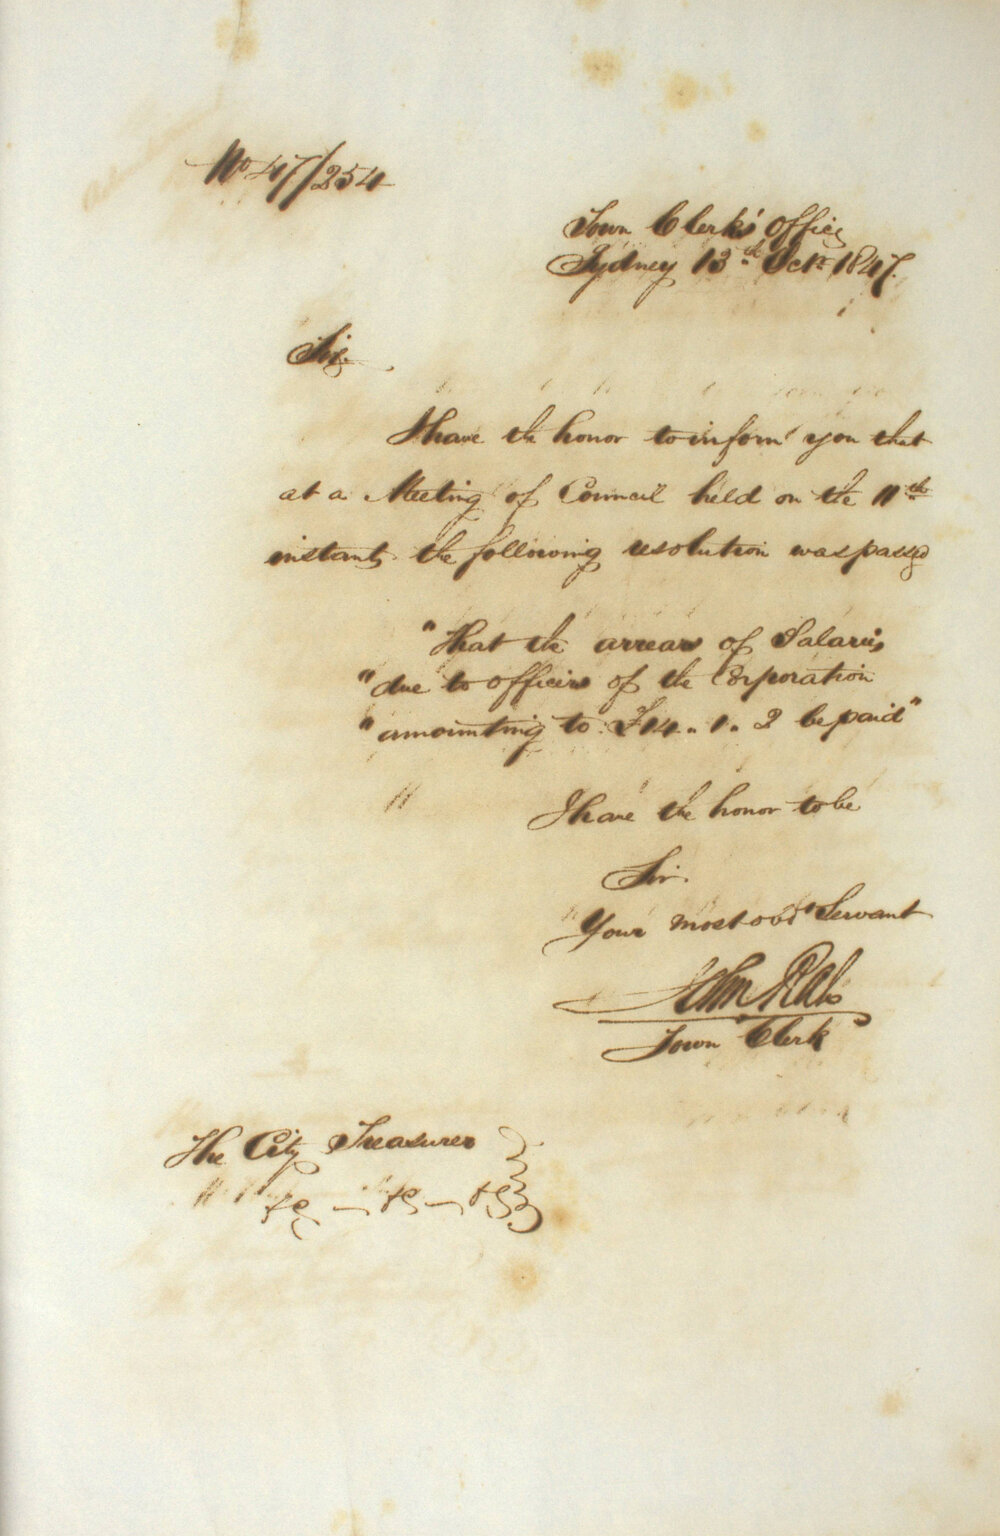 No 47/254
Town Clerk's Office
Sydney 13th Octr 1847.
Sir,
I have the honor to inform you that
at a Meeting of Council held on the 11th
instant the following resolution was passed
"That the arrears of Salaries
"due to officers of the Corporation
"amounting to £14.. 1.. 2 be paid"
I have the honor to be
Sir.
Your most obdt Servant
John Rae
Town Clerk
The City Treasurer
&c — &c — &c